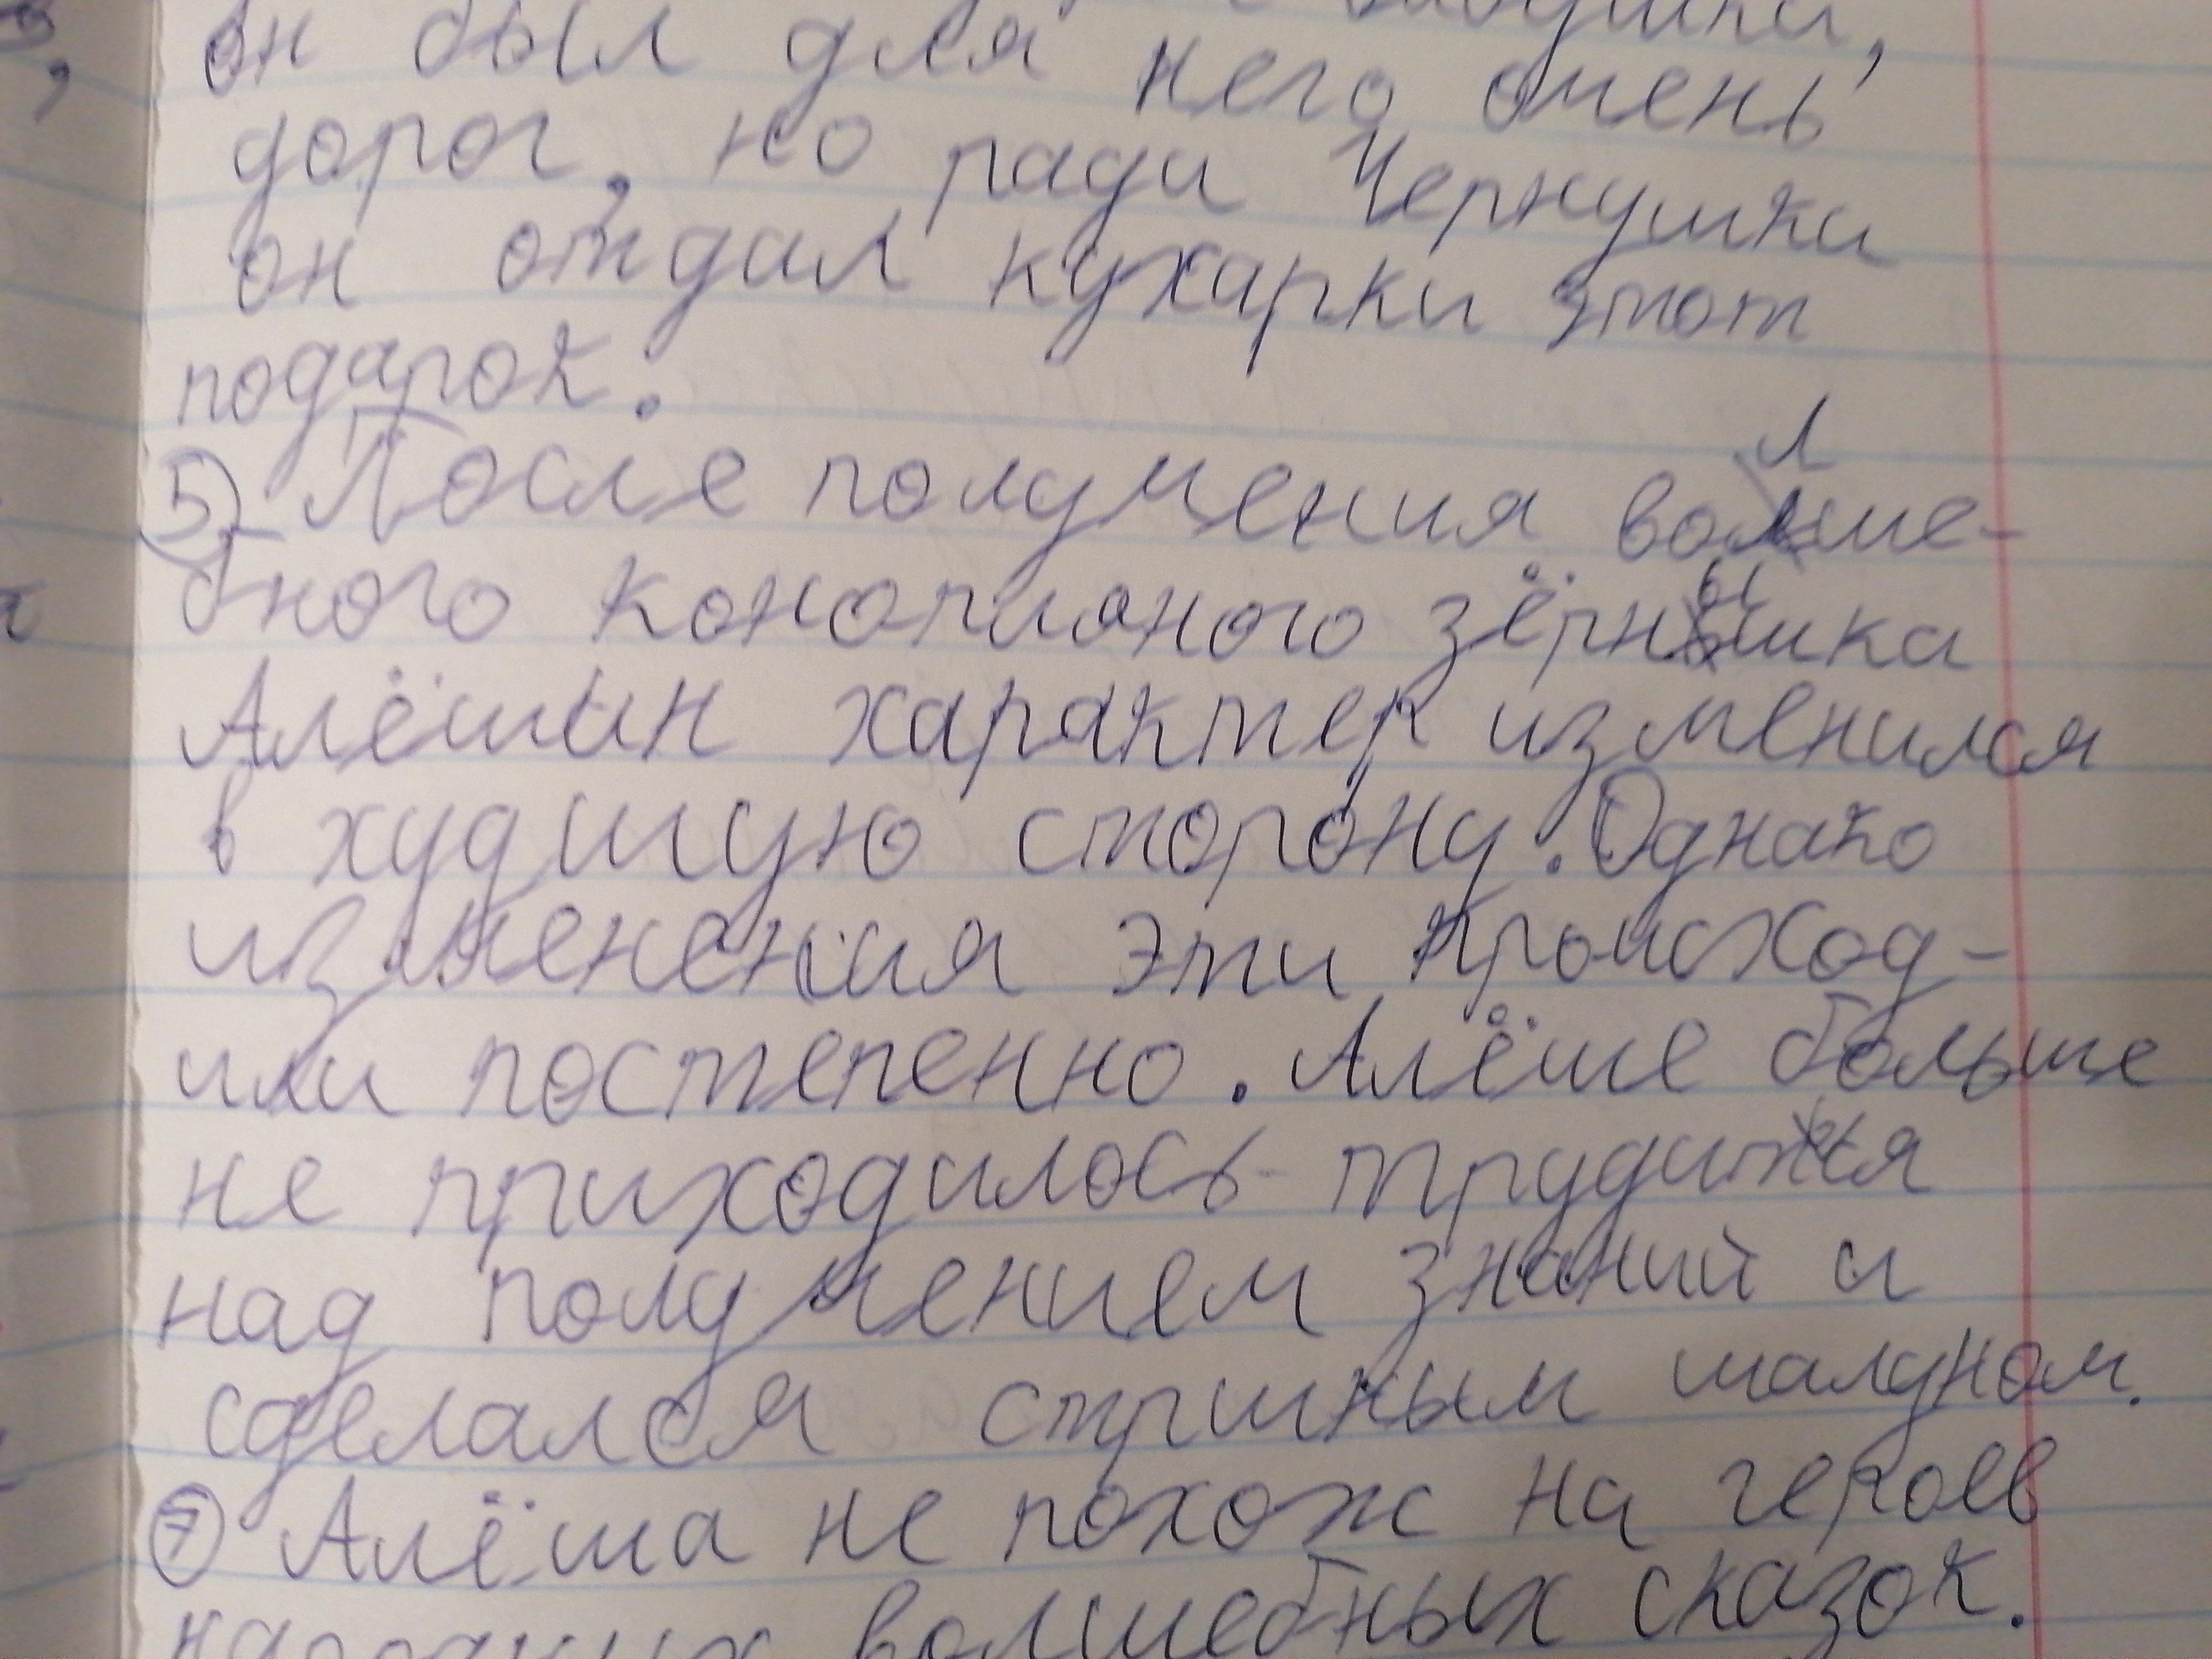 он был для него очень
дорог, но ради Чернушки
он отдал кухарки этот
подарок.
5) После получения волше-
бного конопляного зёрнышка
Алёшин характер изменился
в худшую сторону. Однако
изменения эти происход-
или постепенно. Алёше больше
не приходилось трудится
над получением знаний и
сделался стршным шалуном.
7 Алёша не похож на героев
народных волшебных сказок.